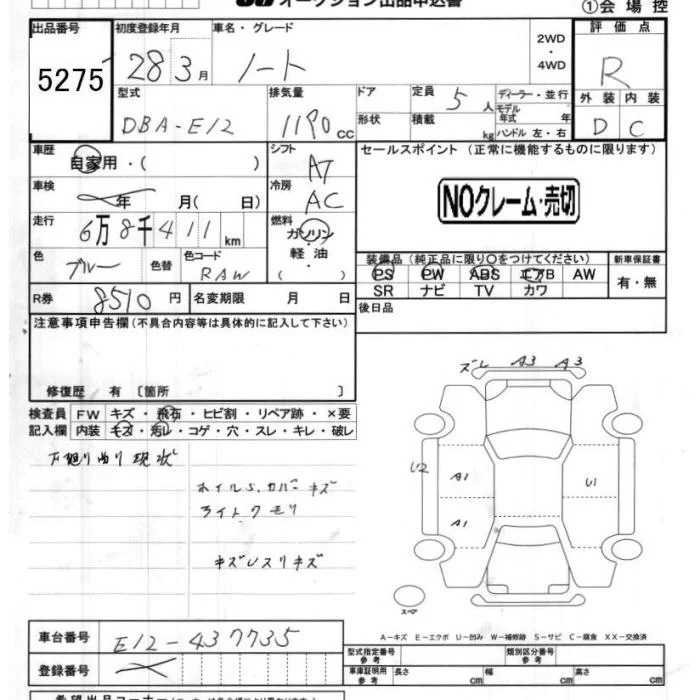 オークション出品申込書
①会場控
出品番号 初度登録年月 車名・グレード 2WD ・ 4WD 評価点
5275 28 3月 ノート R
型式 排気量 ドア 定員 5人 ディーラー・並行 外装 内装
DBA-E12 1190cc 形状 積載 kg モデル年式 年 ハンドル 左・右 D C
車歴 自家用・( ) シフト AT セールスポイント (正常に機能するものに限ります)
車検 年 月( 日) 冷房 AC NOクレーム・売切
走行 6万8千411km 燃料 ガソリン・軽油・( )
色 ブルー 色替 色コード RAW
装備品 (純正品に限り○をつけてください) 新車保証書
PS PW ABS エアB AW 有・無
SR ナビ TV カワ
R券 8510円 名変期限 月 日 後日品
注意事項申告欄 (不具合内容等は具体的に記入して下さい)
修復歴 有 〔箇所 〕
検査員 FW キズ・飛石・ヒビ割・リペア跡・×要
記入欄 内装 キズ・汚レ・コゲ・穴・スレ・キレ・破レ
下廻り曲り 現状
ホイルS.カバーキズ
ライトクモリ
キズUスリキズ
ズレ A3 A3
U2 A1 U1
A1
スペア
A-キズ E-エクボ U-凹み W-補修跡 S-サビ C-腐食 XX-交換済
車台番号 E12-437735
登録番号
型式指定番号 参考 類別区分番号 参考
車庫証明用 参考 長さ cm 幅 cm 高さ cm